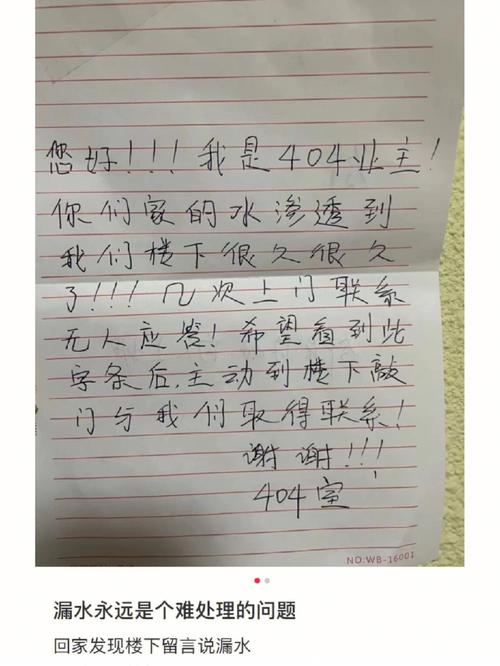 您好!!!我是404业主!
你们家的水渗透到
我们楼下很久很久
了!!!几次上门联系
无人应答!希望看到此
字条后,主动到楼下敲
门与我们取得联系!
谢谢!!!
404室
NO:WB-16001
漏水永远是个难处理的问题
回家发现楼下留言说漏水